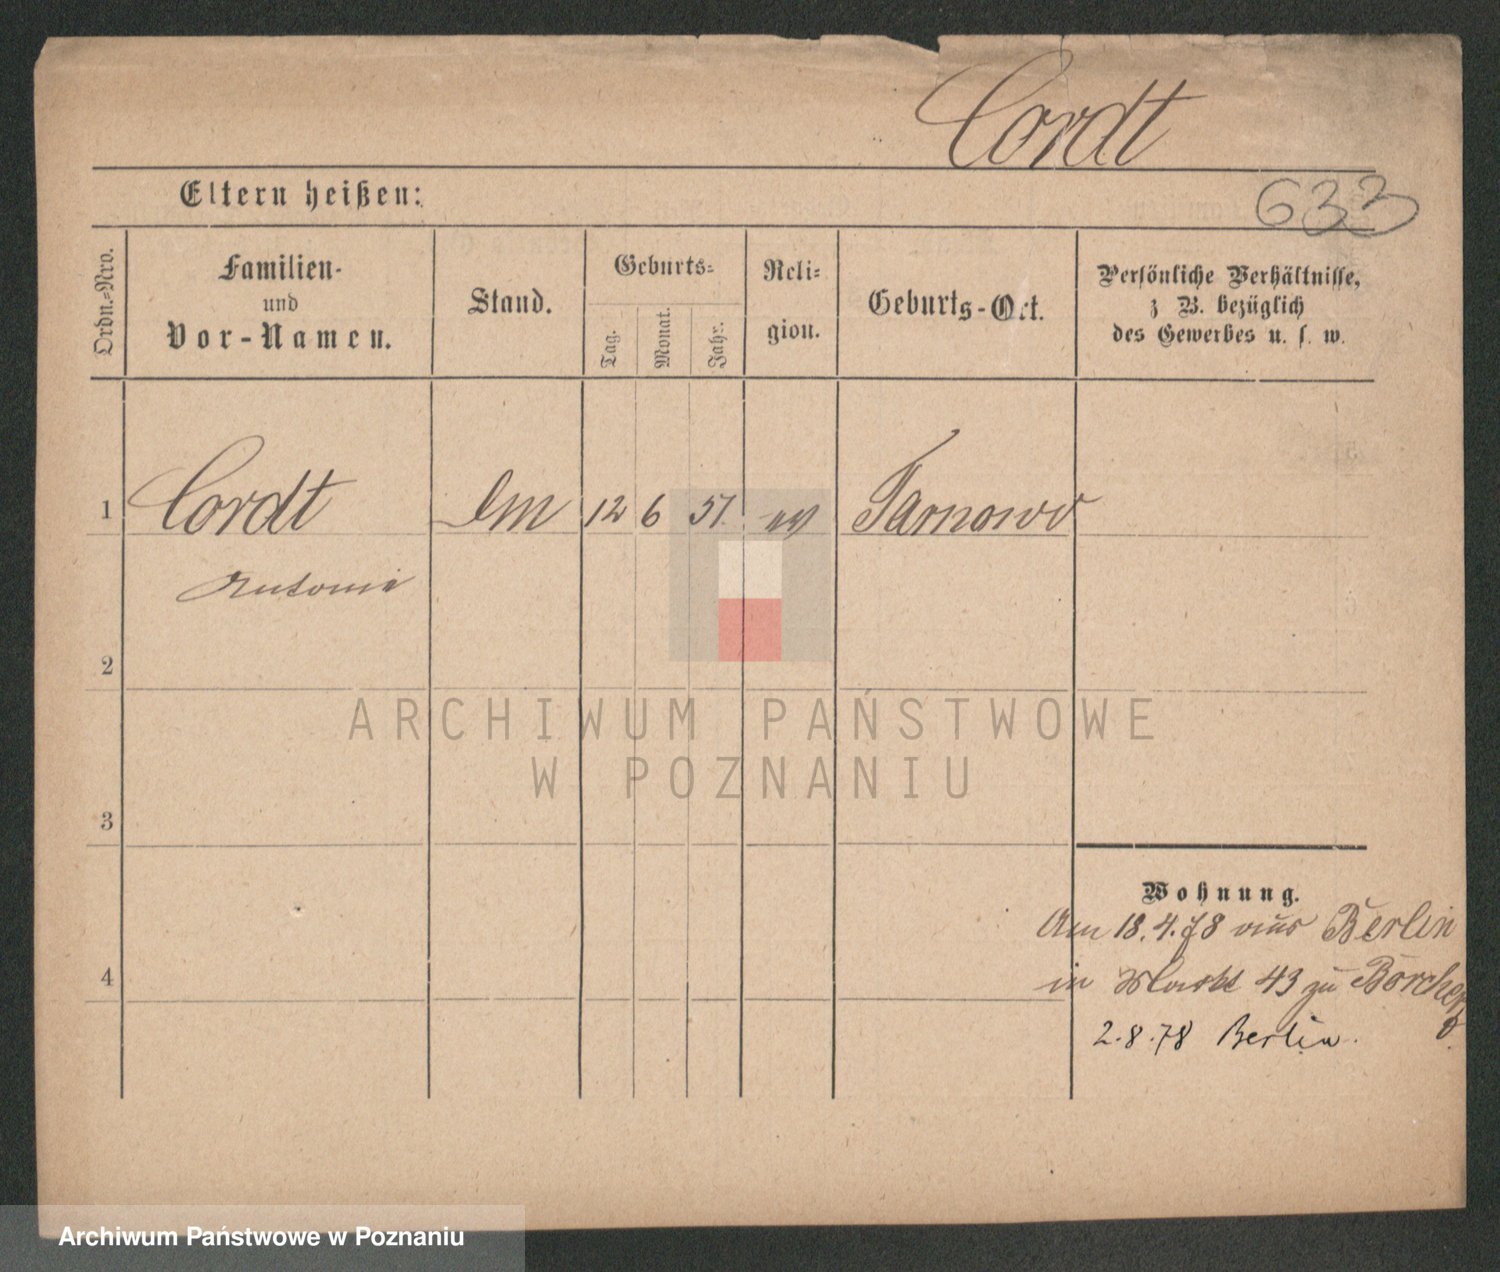 Cordt
633
Eltern heißen:
Ordn.-Nro.
Familien-
und
Vor-Namen.
Stand.
Geburts-
Tag.
Monat.
Jahr.
Reli-
gion.
Geburts-Ort.
Persönliche Verhältnisse,
z B. bezüglich
des Gewerbes u. s. w.
1 Cordt 12 6 51 ev Tarnowo
Antonie
2
ARCHIWUM PAŃSTWOWE
W POZNANIU
3
Wohnung.
Am 18.4.78 aus Berlin
4
in Markt 43 zu
2.8.78 Berlin.
Archiwum Państwowe w Poznaniu